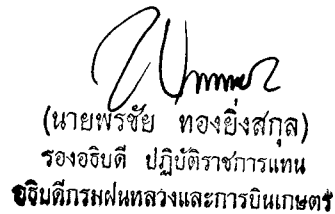 (นายพรชัย ทองยิ่งสกุล)
รองอธิบดี ปฏิบัติราชการแทน
อธิบดีกรมฝนหลวงและการบินเกษตร